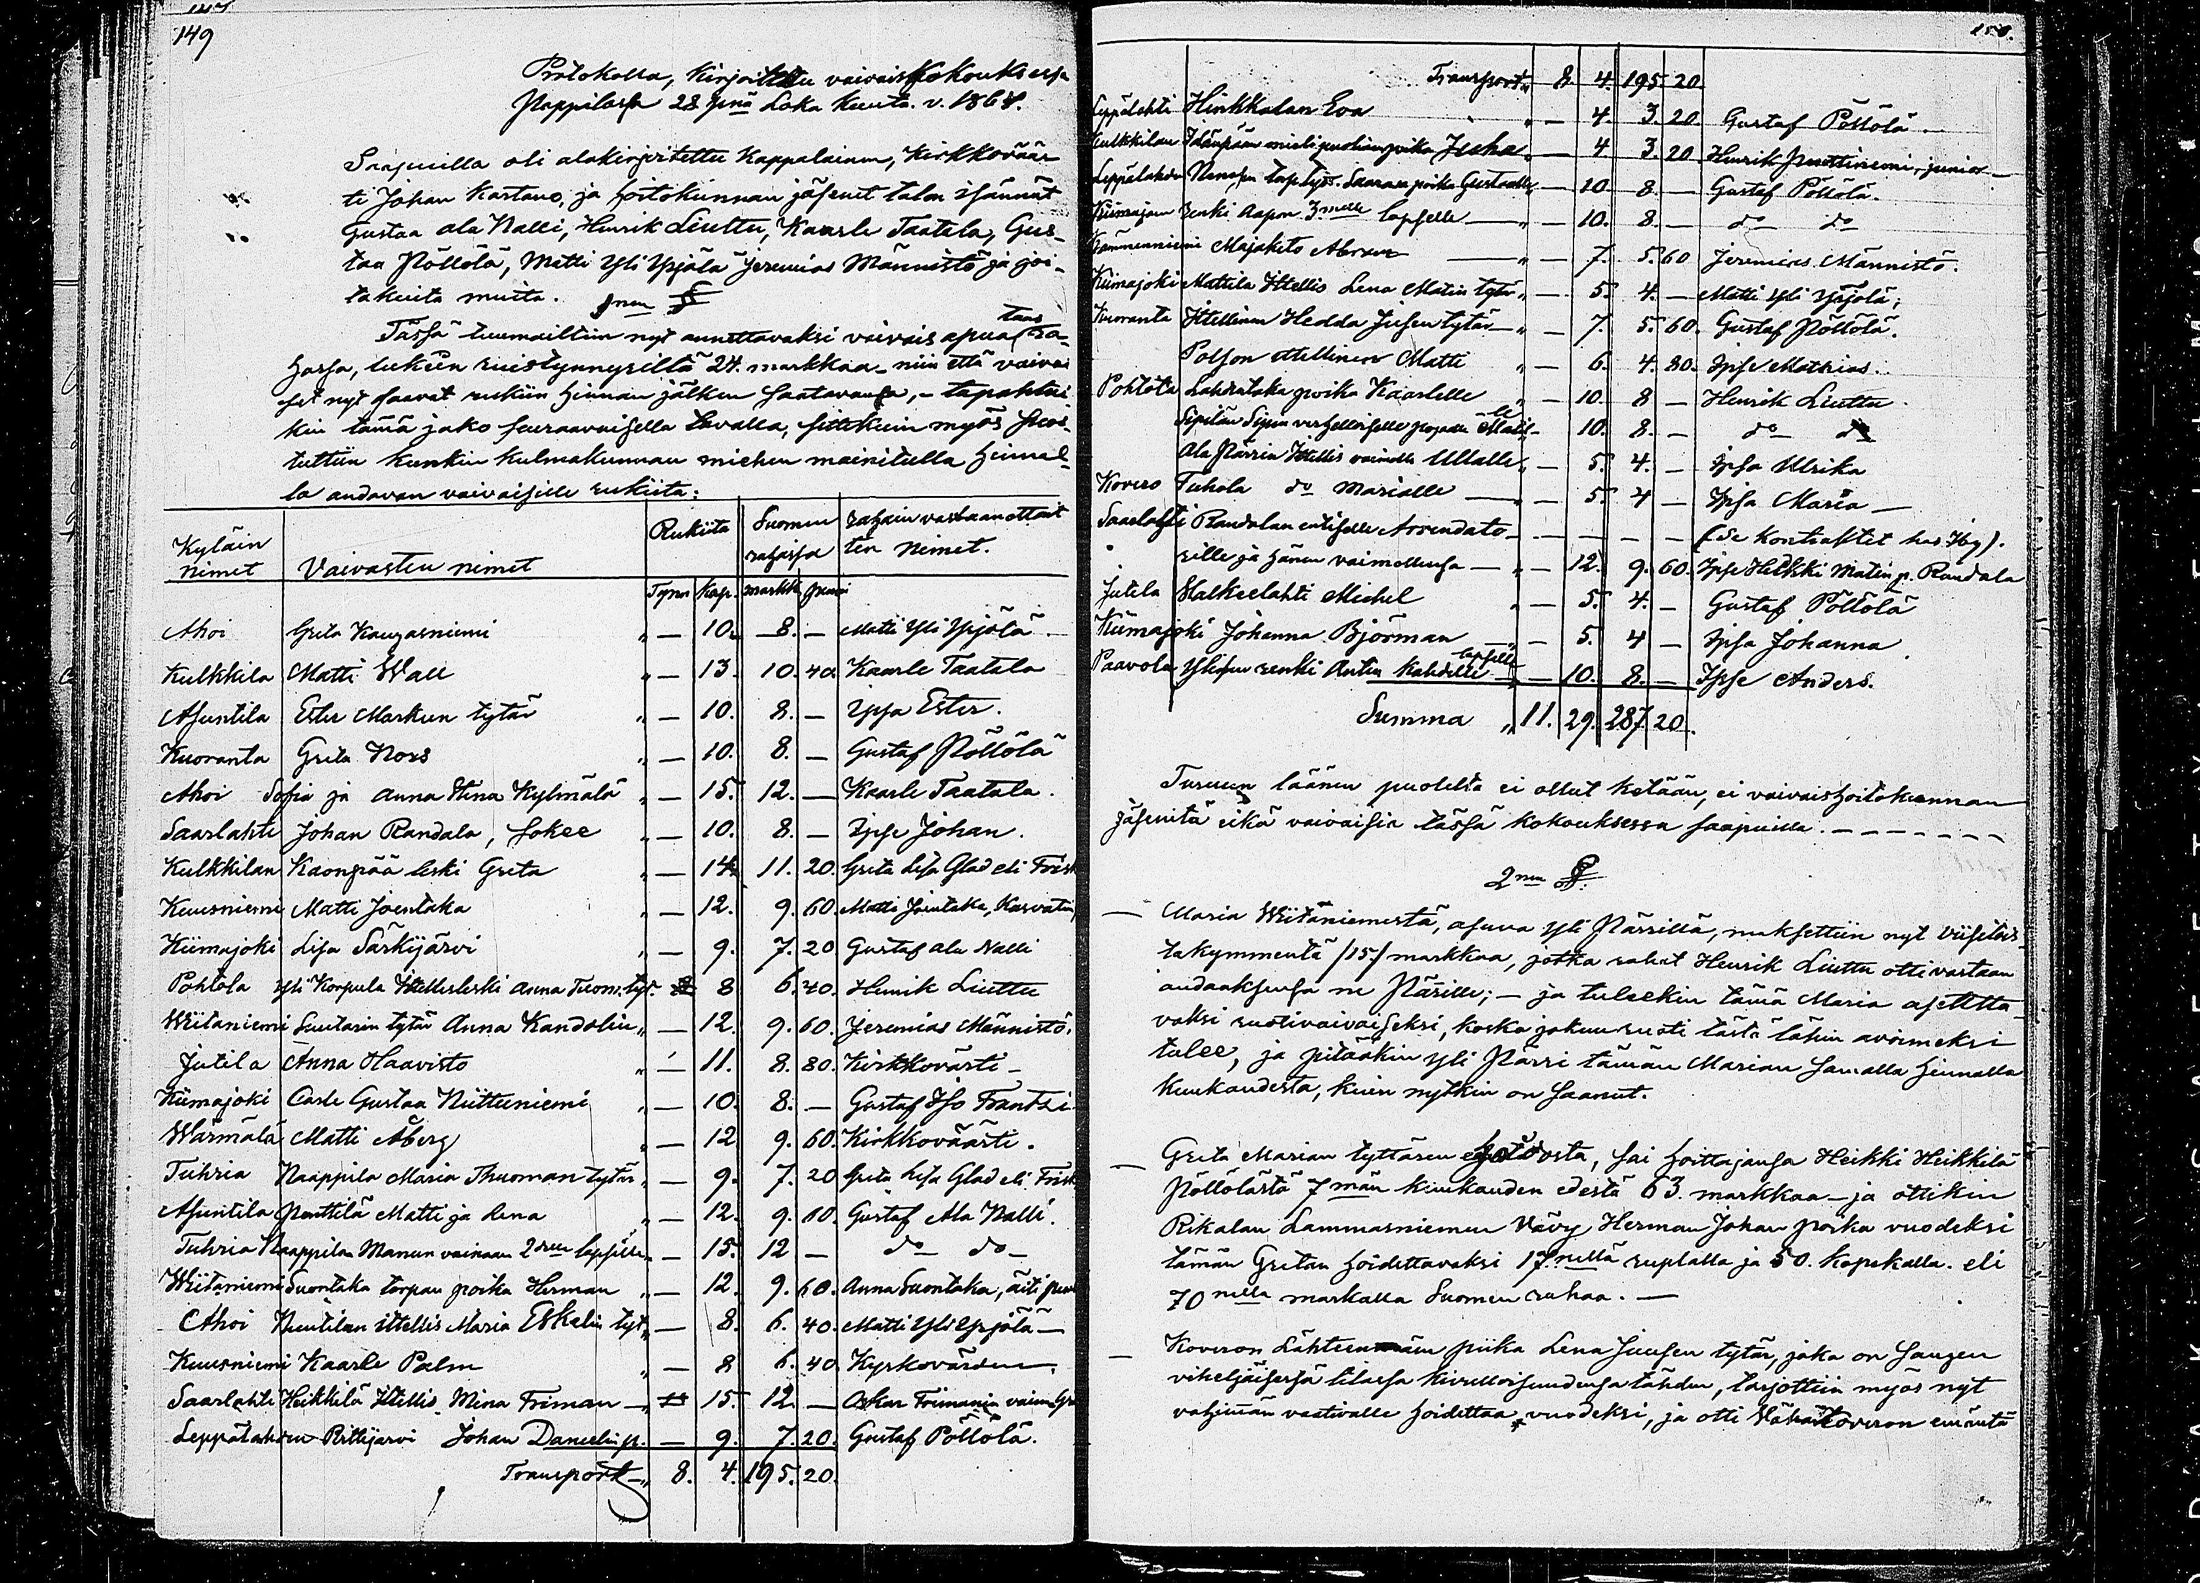 149
Protokolla, Kirjoitettu vaivaiskokouksessa
Pappilassa 28 pnä Loka Kuuta. v. 1868.
Saapuilla oli alakirjoitettu Kappalainen, Kirkkoväär
ti Johan Kartano, ja hoitokunnan jäsenet talon isännät
Gustaa ala Nalli, Henrik Liuttu, Kaarle Taatala, Gus-
taa Pöllölä, Matti Yli Ypjälä Jeremias Männistö ja joi-
takuita muita.
1nen §
Tässä tuumailtiin nyt annettavaksi vaivais apua taas ra-
hassa, lukien ruistynnyriltä 24. markkaa niin että vaivai
set nyt saavat rukiin hinnan jälken saatavansa, - tapahtui
kin tämä jako seuraavaisella tavalla, sittekuin myös suos-
tuttiin kunkin kulmakunnan miehen mainitulla hinnal-
la andavan vaivaisille rukiita:
Kyläin nimet Vaivasten nimet Rukiita Suomen rahassa rahain vastaanottait ten nimet.
Tynn Kap. markk penni
Ahoi Greta Kangasniemi " — 10. 8. — Matti Yli Ypjölä
Kulkkila Matti Wall " — 13. 10. 40 Kaarle Taatala
Asuntila Ester Markun tytär " — 10. 8. — Ipsa Ester.
Kuoranta Greta Nors " — 10. 8. — Gustaf Pöllölä
Ahoi Sofia ja Anna Stina Kylmälä " — 15. 12. — Kaarle Taatala.
Saarlahti Johan Randala, sokee " — 10. 8. — Ipse Johan.
Kulkkilan Kaonpää leski Greta " — 14. 11. 20. Greta Lisa Glad eli Frisk
Kuusniemi Matti Joentaka " — 12. 9. 60. Matti Joentaka, Karvatin
Kiimajoki Lisa Särkijärvi " — 9. 7. 20 Gustaf ala Nalli
Pohtola Yli Korpula Ittellisleski Anna Tuom. tyt. 8 6. 40. Henrik Liuttu
Wiitaniemi Suutarin tytär Anna Kandolin " — 12. 9. 60. Jeremias Männistö.
Jutila Anna Haavisto " — 11. 8. 80. Kirkkovärti -
Kiimajoki Carle Gustaa Niittuniemi " — 10. 8. — Gustaf Iso Frantsi
Wärmälä Matti Åberg " — 12 9. 60. Kirkkoväärti.
Tuhria Naappila Maria Thuoman tytär " — 9. 7. 20 Greta Lisa Glad eli Frisk
Asuntila Penttilä Matti ja Lena " — 12. 9. 60. Gustaf Ala Nalli.
Tuhria Naappilan Manun vainaan 2den lapsille " — 15. 12 — do do -
Wiitaniemi Suontaka torpan poika Herman " — 12. 9. 60. Anna Suontaka, äiti
Ahoi Knutilan ittellis Maria Eskelin tyt. " — 8. 6. 40. Matti Yli Ypjölä —
Kuusniemi Kaarle Palm " — 8 6. 40 Kyrkovärden
Saarlahti Heikkilä Ittellis Mina Friman " 15. 12. — Oskar Frimanin vaimo
Leppälahden Rittijarvi Johan Danielin p. — 9. 7. 20. Gustaf Pöllölä.
Transport " 8. 4. 195. 20.
150.
Transport " 8. 4. 195. 20.
Leppälahti Hinkkalan Eva " — 4. 3. 20. Gustaf Pöllölä.
Kulkkilan mielipuolinpoika Juha " — 4 3. 20 Henrik junior
Leppälahden Saaran poika Gustaalle " — 10. 8. — Gustaf Pöllölä.
Kiimajoen renki Aapon 3melle lapselle " — 10. 8. — do do
Kämmenniemi Majaketo Abram " — 7. 5. 60 Jeremias Männistö.
Kiimajoki Mattila Ittellis Lena Matin tytär " — 5. 4. — Matti Yli Ypjölä;
Kuoranta Ittellinen Hedda Jusen tytär " — 7. 5. 60. Gustaf Pöllölä.
Polson ittellinen Matti " — 6. 4. 80. Ipse Mathias.
Pohtola Lahentaka poika Kaarlelle " — 10. 8 — Henrik Liuttu.
Sipilän 10. 8. — do do
Ala Närrin Ittellis vaimolle Ullalle " — 5. 4. — Ipsa Ulrika
Kovero Tuhola do Marialle " — 5. 4 — Ipsa Maria —
Saarlahti Randalan entiselle Arrendato- — — — — (se kontraktet hos Hög).
rille ja hänen vaimollensa " — 12. 9. 60. Ipse Heikki Matin p. Randala
Jutila Valkeelahti Michel " — 5. 4. — Gustaf Pöllölä
Kiimajoki Johanna Björman " — 5. 4 — Ipsa Johanna
Paavola Ylisen renki Antin kahdelle lapselle " — 10. 8. — Ipse Anders.
Summa " 11. 29. 287. 20.
Turuun läänin puolelta ei ollut ketään, ei vaivaishoitokunnan
jäseniä eikä vaivaisia tässä kokouksessa saapuilla. — — — —
2nen §.
— Maria Wiitäniemestä, asuva Yli Närrillä, maksettiin nyt viisitois-
takymmentä /15/ markkaa, jotka rahat Henrik Liuttu otti vastaan
andaaksensa ne Närille; - ja tuleekin tämä Maria asetetta
vaksi ruotivaivaiseksi, koska jokuu ruoti tästä lähin avoimeksi
tulee, ja pitääkin Yli Närri tämän Marian samalla hinnalla
kuukaudesta, kuin nytkin on saanut.
— Greta Marian tyttären hoidosta, sai hoittajansa Heikki Heikkilä
Pöllölästä 7 män kuukauden edestä 63. markkaa - ja ottikin
Rikalan Lammasniemen Vävy Herman Johan poika vuodeksi
tämän Gretan hoidettavaksi 17.nellä ruplalla ja 50. kopekalla. eli
70 nellä markalla Suomen rahaa. —
— Koveron Lähteenmäen piika Lena Juusen tytär, joka on sangen
viheljäisessä tilassa kivulloisuudensa tähden, tarjottiin myös nyt
vähimän vaativalle hoidettaa vuodeksi, ja otti Vähä Koveron emäntä